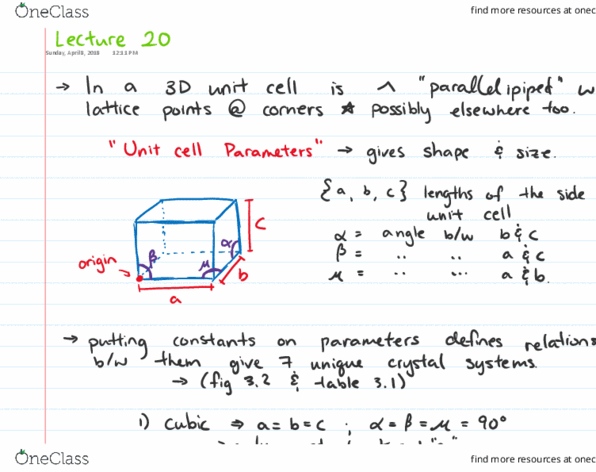 OneClass
find more resources at onec
Lecture 20
Sunday, April 8, 2018
→ In a 3D unit cell is ^ "parallelipiped" w
lattice points @ corners * possibly elsewhere too.
"Unit cell Parameters" → gives shape & size.
{a, b, c} lengths of the side
unit cell
α = angle b/w b & c
β = " " a & c
μ = " " a & b.
c
α
β
μ
b
origin
a
→ putting constants on parameters defines relations
b/w them give 7 unique crystal systems
→ (fig 3.2 & table 3.1)
1) cubic ⇒ a=b=c ; α=β=μ=90°
OneClass
find more resources at onec